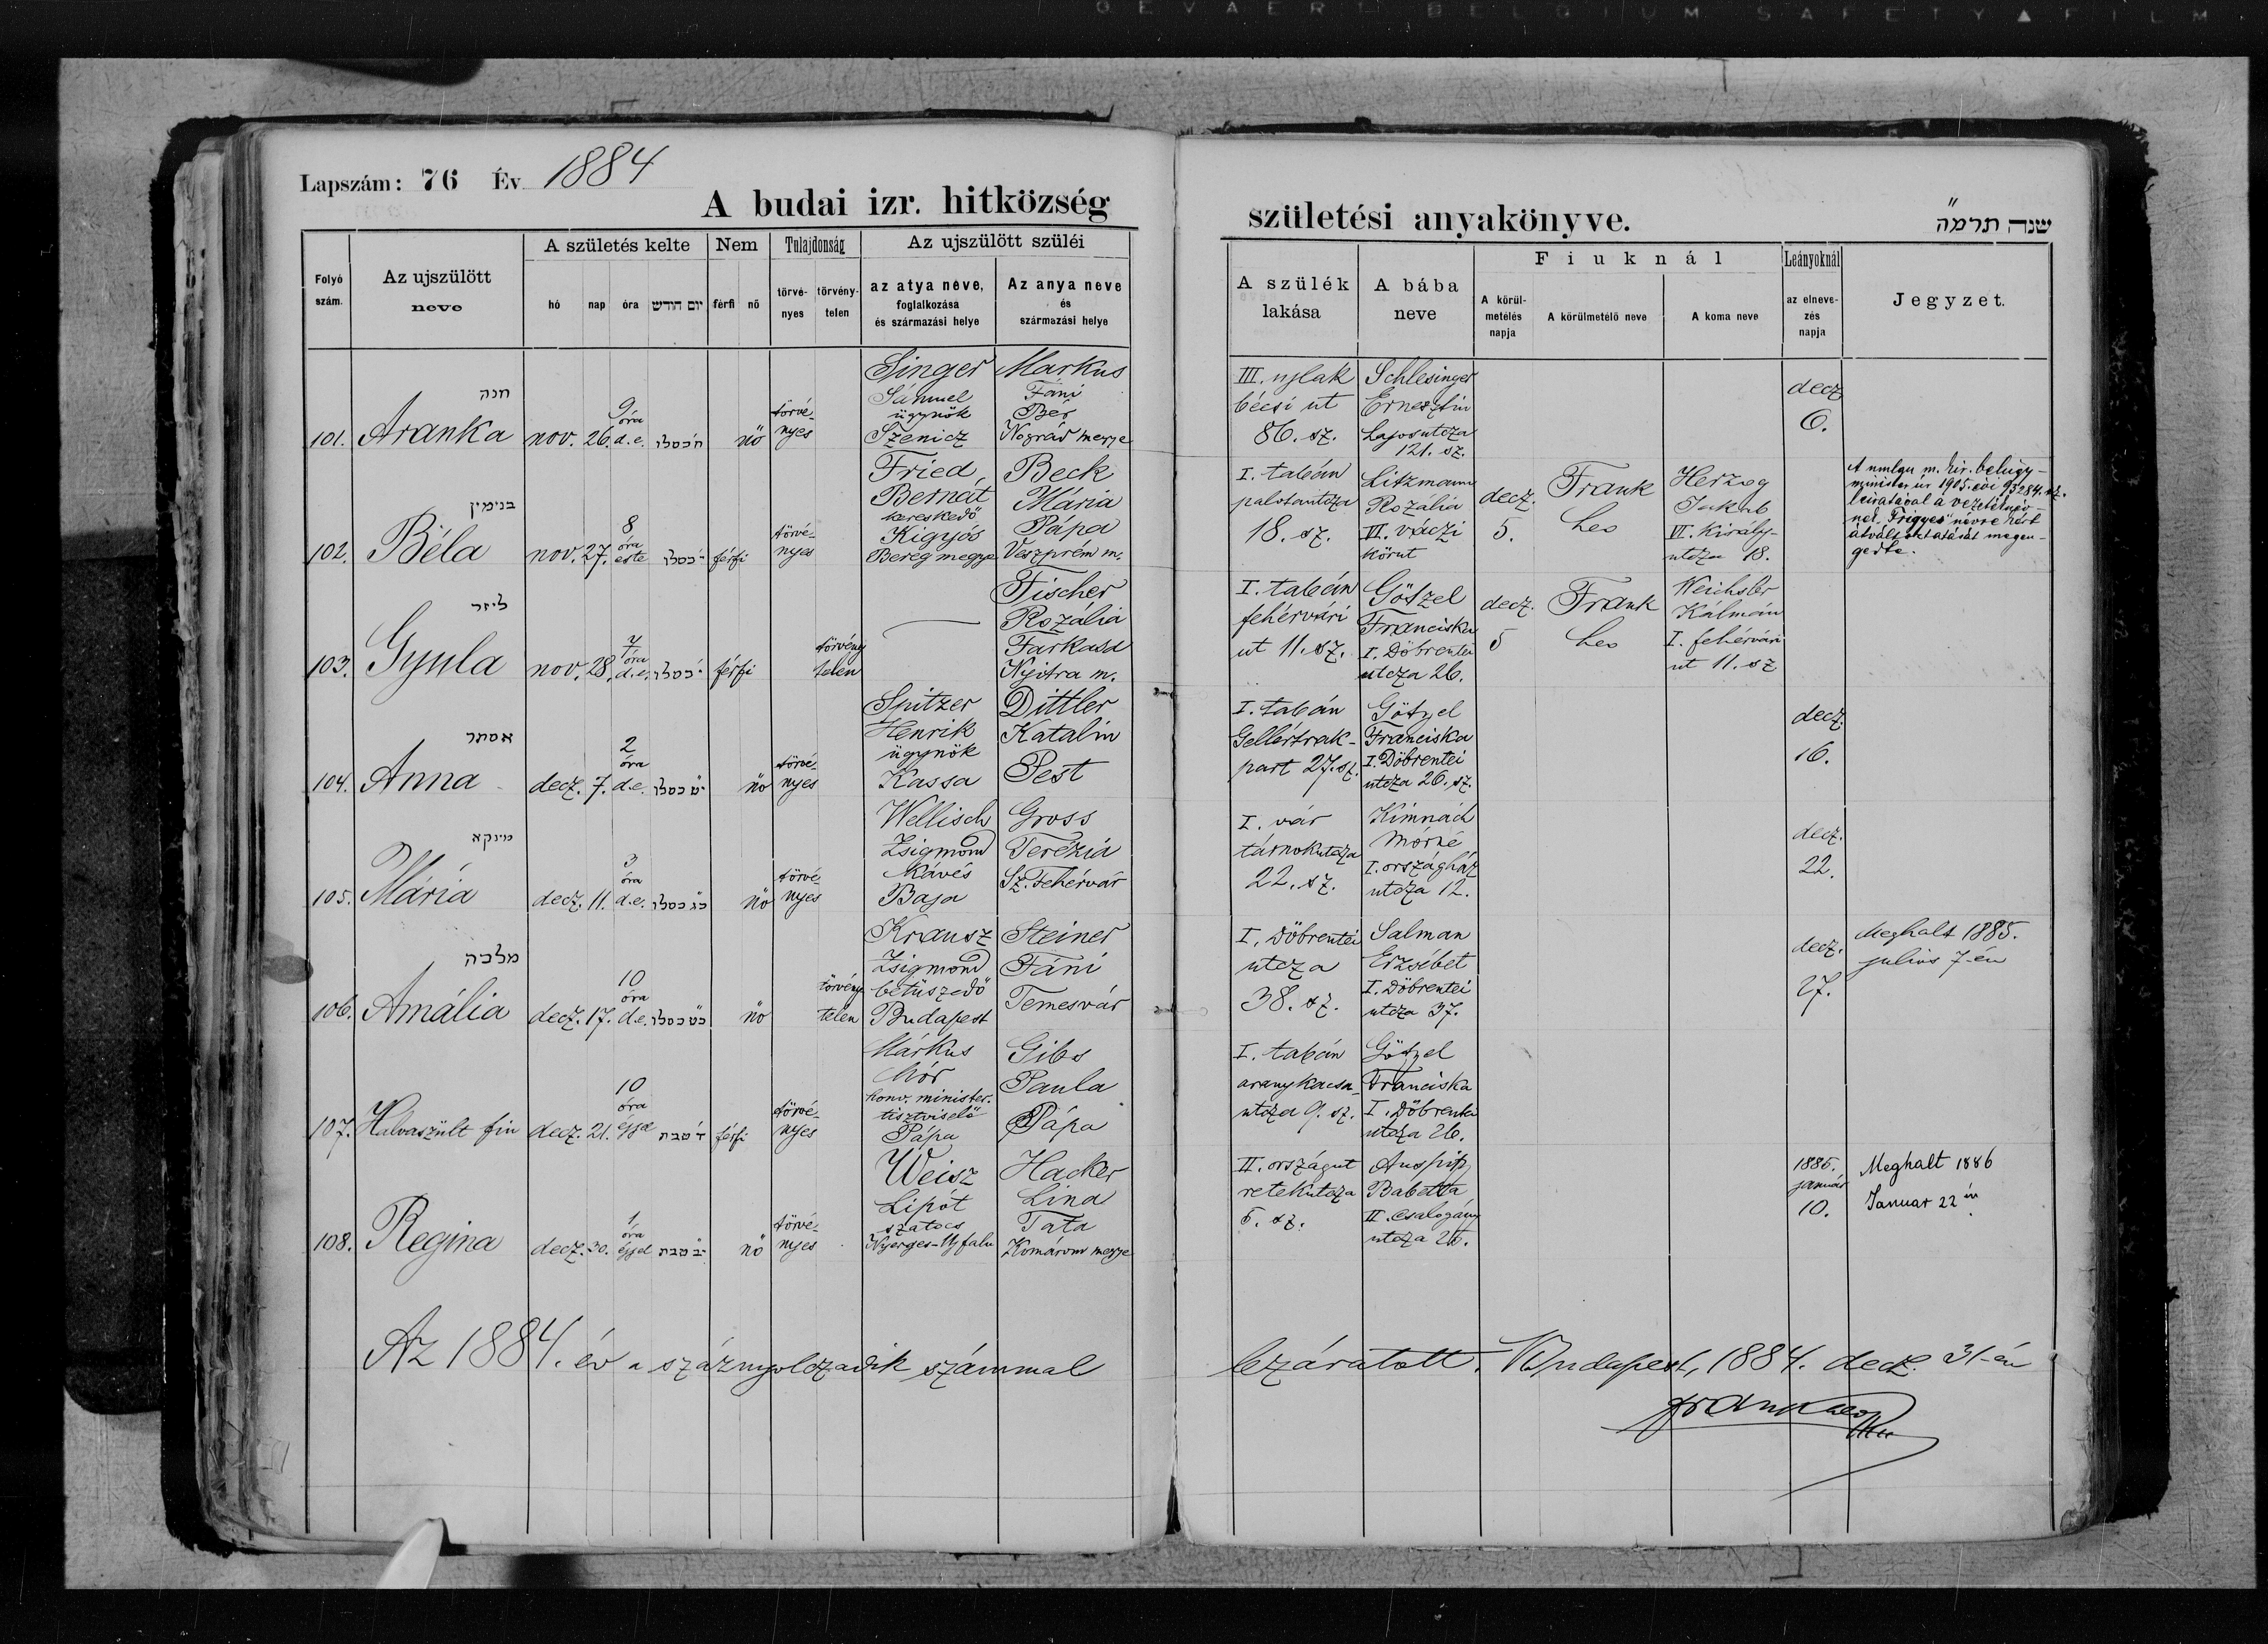 GEVAERT BELGIUM SAFETY ▲ FILM
Lapszám: 76 Év 1884
A budai izr. hitközség születési anyakönyve.
שנה תרמ"ה
Folyó szám.
Az ujszülött neve
A születés kelte
hó nap óra יום חודש
Nem
férfi nő
Tulajdonság
törvényes törvénytelen
Az ujszülött szüléi
az atya neve, foglalkozása és származási helye
Az anya neve és származási helye
A szülék lakása
A bába neve
Fiuknál
A körülmetélés napja
A körülmetélő neve
A koma neve
Leányoknál
az elnevezés napja
Jegyzet.
101. Aranka חנה
nov. 26. 9 óra d.e. ח' כסלו nő törvényes
Singer Sámuel ügynök Szenicz
Markus Fáni Bér Nográd megye
III. ujlak bécsi ut 86. sz.
Schlesinger Ernesztin Lajosutcza 121. sz.
decz 6.
102. Béla בנימין
nov. 27. 8 óra este י' כסלו férfi törvényes
Fried Bernát kereskedő Kigyós Bereg megye
Beck Mária Pápa Veszprém m.
I. tabán palotautcza 18. sz.
Litzmann Rozália VI. váczi körut
decz. 5.
Frank Leo
Herzog Jakab VI. Király-utcza 18.
A nmlgu m. kir. belügy-
minister úr 1905. évi 93284. sz.
leiratával a vezetéknév-
nek "Frigyes" névre kért
átváltoztatását megen-
gedte.
103. Gyula ליזר
nov. 28. 4 óra d.e. י' כסלו férfi törvénytelen
—
Fischer Rozália Farkasd Nyitra m.
I. tabán fehérvári ut 11. sz.
Götzel Franciska I. Döbrentei utcza 26.
decz. 5
Frank Leo
Weichsler Kálmán I. fehérvári ut 11. sz
104. Anna אסתר
decz. 7. 2 óra d.e. י"ט כסלו nő törvényes
Spitzer Henrik ügynök Kassa
Dittler Katalin Pest
I. tabán Gellértrak-part 27. sz.
Götzel Franciska I. Döbrentei utcza 26. sz.
decz. 16.
105. Mária מינקא
decz. 11. 3 óra d.e. כ"ג כסלו nő törvényes
Wellisch Zsigmond Kávés Baja
Gross Terézia Sz. Fehérvár
I. vár tárnokutcza 22. sz.
Kimnách Mórné I. országház utcza 12.
decz. 22.
106. Amália מלכיה
decz. 17. 10 óra d.e. כ"ט כסלו nő törvénytelen
Krausz Zsigmond betűszedő Budapest
Steiner Fáni Temesvár
I. Döbrentei utcza 38. sz.
Salman Erzsébet I. Döbrentei utcza 37.
decz. 27.
Meghalt 1885.
julius 7-én
107. Halvaszült fiu
decz. 21. 10 óra éjjel ד' טבת férfi törvényes
Márkus Mór honv. minister. tisztviselő Pápa
Gibs Paula Pápa
I. tabán aranykacsa utcza 9. sz.
Götzel Franciska I. Döbrentei utcza 26.
108. Regina
decz. 30. 1 óra éjjel י"ב טבת nő törvényes
Weisz Lipót szatocs Nyerges-Ujfalu
Hacker Lina Tata Komárom megye
II. országut retekutcza 5. sz.
Auspitz Babetta II. csalogány utcza 26.
1885. január 10.
Meghalt 1886
Januar 22 én
Az 1884. év a száznyolczadik számmal lezáratott. Budapest, 1884. decz. 31-én
Frank Leo